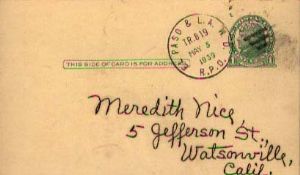 EL PASO & L.A. W.D.
TR. 819
MAY 5
1939
R.P.O.
THIS SIDE OF CARD IS FOR ADDRESS
Meredith Nice,
5 Jefferson St.,
Watsonville,
Calif.